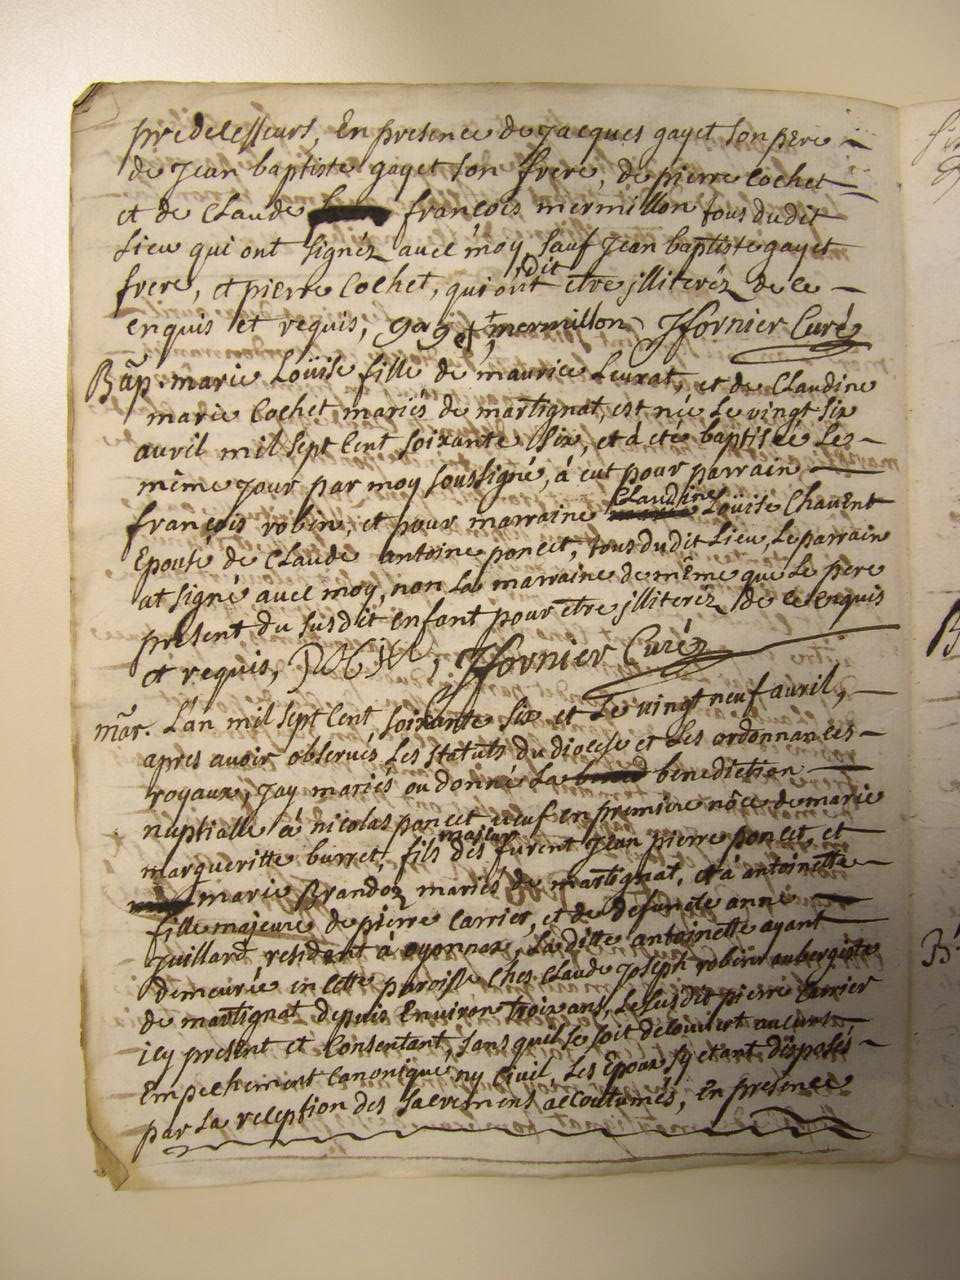 predelesseurs, En presence de jacques gayet son pere
de jean baptiste gayet son frere, de pierre Cochet
et de Claude françois mermillon tous dudit
Lieu qui ont signéz avec moy sauf jean baptiste gayet
frere, et pierre Cochet, qui ont dit être jlliteréz de ce
enquis et requis, gayet, mermillon JFornier Curé
Bap. marie Loüise fille de maurice Levrat, et de Claudine
marie Cochet mariés de martignat, est née Le vingt six
avril mil sept Cent soixante six, et à eté baptisée Le
même jour par moy soussigné, à eut pour parrain
françois robin, et pour marraine Claudine Loüise Chavent
Epouse de Claude antoine poncet, tous dudit Lieu, Le parrain
at signé avec moy, non La marraine de même que Le pere
present du susdit enfant pour être jlliteréz de ce enquis
et requis, JFornier Curé
mar. L'an mil sept Cent soixante six et Le vingt neuf avril,
apres avoir observés Les statuts du diocese et Les ordonnances
royaux, jay mariés ou donné La benediction
nuptialle à nicolas poncet veuf en premiere nôce de marie
margueritte burret, fils majeur des furent jean pierre poncet, et
marie Brandoz mariés de martignat, et à antoinette
fille majeure de pierre Carrier, et de defuncte anne
juillard resident à oyonnax, Laditte antoinette ayant
demeurée en Cette paroisse Ches Claude joseph robin aubergiste
de martignat depuis Environ troix ans, Le susdit pierre Carrier
icy present et Consentant, sans quel se soit decouvert aucuns
Empechement Canonique ny Civil, Les Epoux sy etant disposés
par La reception des sacremens accoutumés, en presence